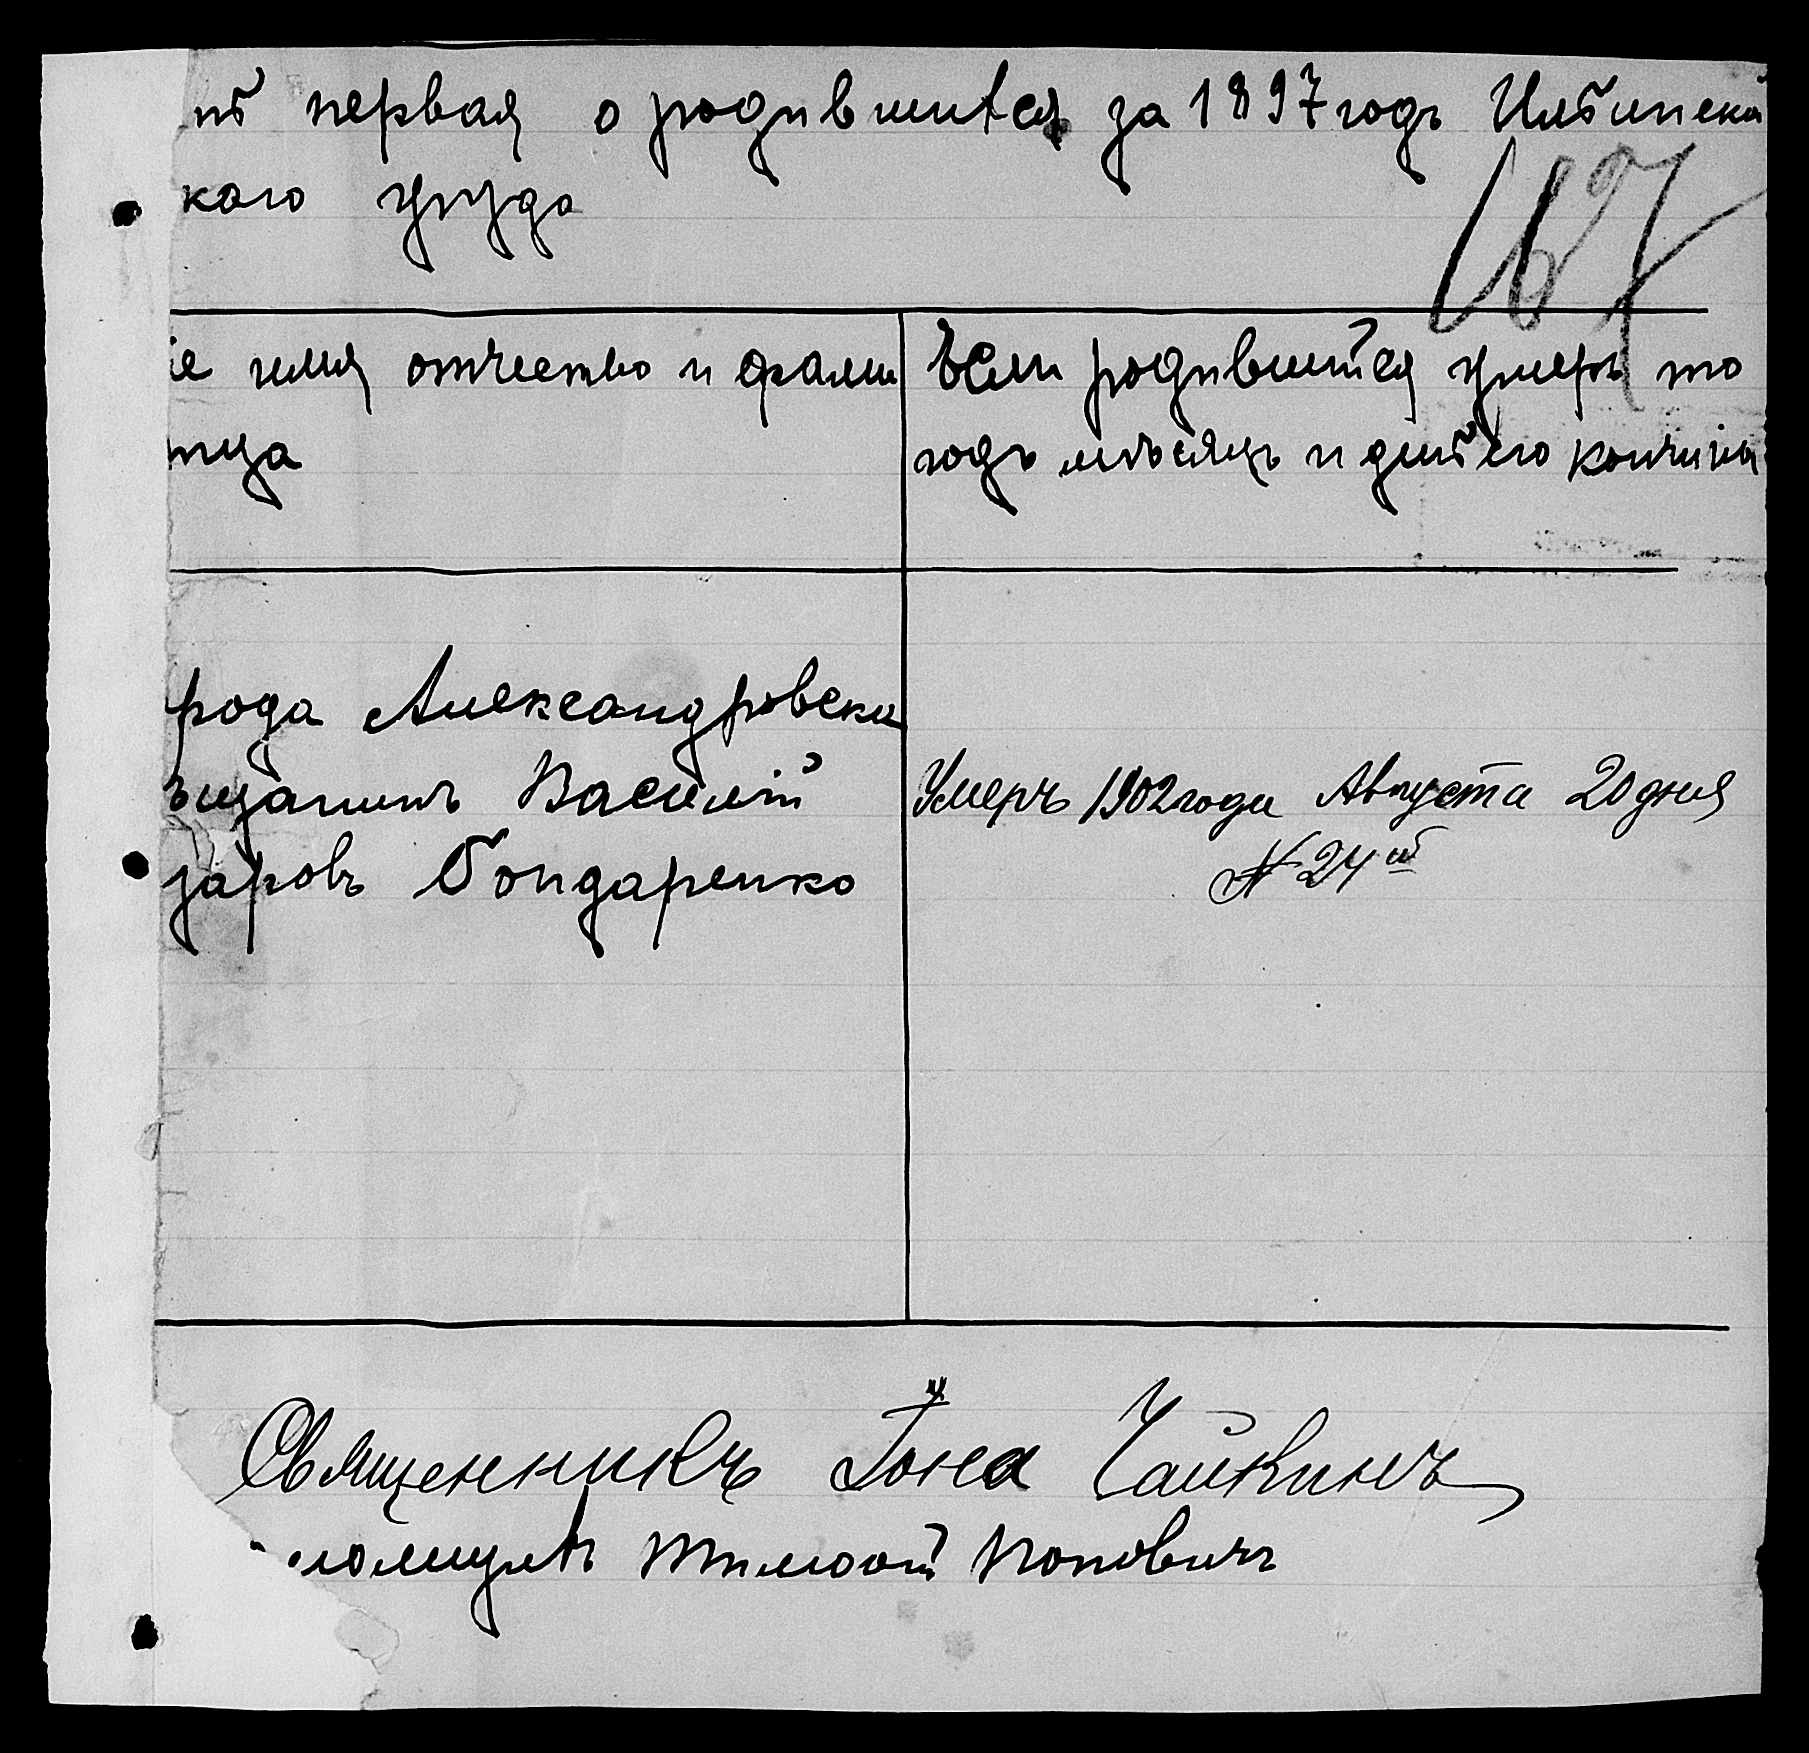 ть первая о родившихся за 1897 годъ Ильинской
кого уѣзда
167
іе имя отчество и фамил
тца
Если родившійся умеръ то
годъ мѣсяцъ и день его кончины
рода Александровска
ѣщанинъ Василій
заровъ Бондаренко
Умеръ 1902 года Августа 20 дня
№ 24й
Священникъ Іона Чайкинъ
ломщикъ Тимофей Поповичъ